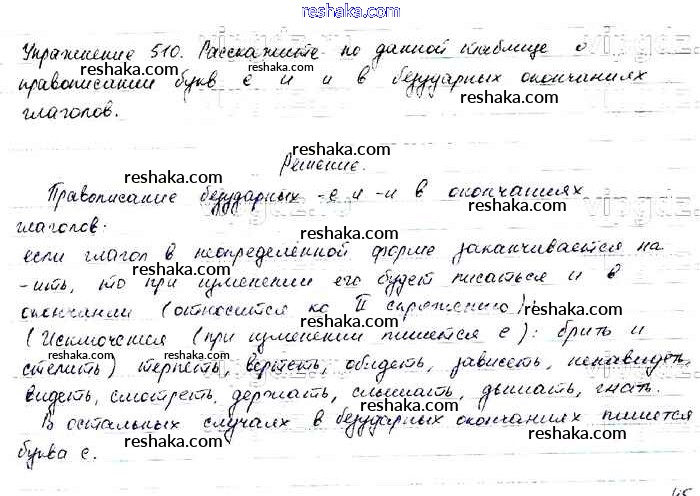 reshaka.com
Упражнение 510. Расскажите по данной таблице о
reshaka.com reshaka.com
правописании букв е и и в безударных окончаниях
reshaka.com
глаголов.
reshaka.com reshaka.com
Решение.
Правописание безударных -е и -и в окончаниях
reshaka.com reshaka.com
глаголов:
если глагол в неопределённой форме заканчивается на
reshaka.com reshaka.com
-ить, то при изменении его будет писаться и в
окончании (относится ко II спряжению);
reshaka.com reshaka.com
(Исключения (при изменении пишется е): брить и
reshaka.com reshaka.com reshaka.com
стелить) терпеть, вертеть, обидеть, зависеть, ненавидеть,
видеть, смотреть, держать, слышать, дышать, гнать.
reshaka.com reshaka.com
В остальных случаях в безударных окончаниях пишется
reshaka.com reshaka.com
буква е.
reshaka.com